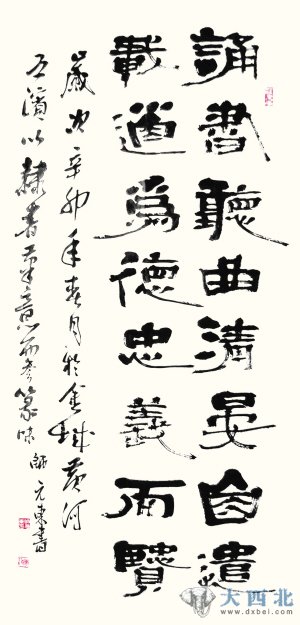 誦書聽曲清晏自遣
載道為德忠義而贒
歲次辛卯年春月於金城黃河
之濱以隸書筆意而參篆味 師元東書
大西北
www.dxbei.com